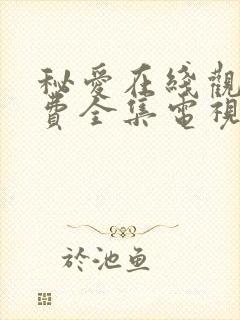 秘愛在綫觀
費全集電視
於池魚